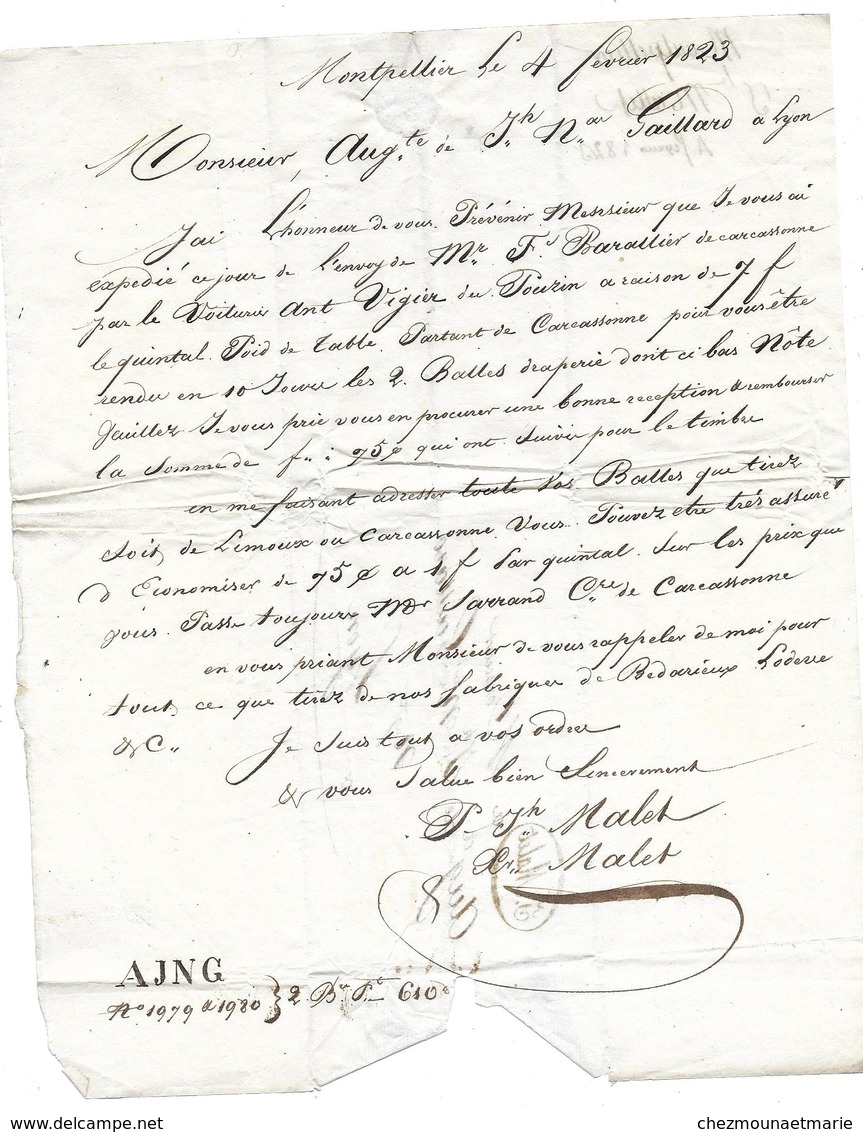 Montpellier Le 4 fevrier 1823
Monsieur, Augte de Jh Nas Gaillard a Lyon
Jai L'honneur de vous Prévénir Messieur que Je vous ai
expedié ce jour de L'envoy de Mr Fs Barallier de carcassonne
par le Voiturier Ant Vigier du Pouzin a raison de 7 f
le quintal Poid de Table Partant de Carcassonne pour vous être
rendu en 10 Jours les 2 Balles draperie dont ci bas Nôte
Veuillez Je vous prie vous en procurer une bonne reception & rembourser
la Somme de f " : 75 c qui ont Suivie pour le timbre
en me faisant adresser toute vos Balles que tirez
Soit de Limoux ou Carcassonne Vous Pouvez etre très assuré
d'Economiser de 75 c a 1 f Par quintal Sur les prix que
vous Passe toujours Mr Sarrand Cre de Carcassonne
en vous priant Monsieur de vous rappeler de moi pour
tout ce que tirez de nos fabriques de Bedarieux Lodeve
&c" Je Suis tout a vos ordres
& vous Salue bien Sincerement
P Jh Malet
Malet
AJNG
No 1979 a 1980 } 2 Bes Pt 610
chezmounaetmarie